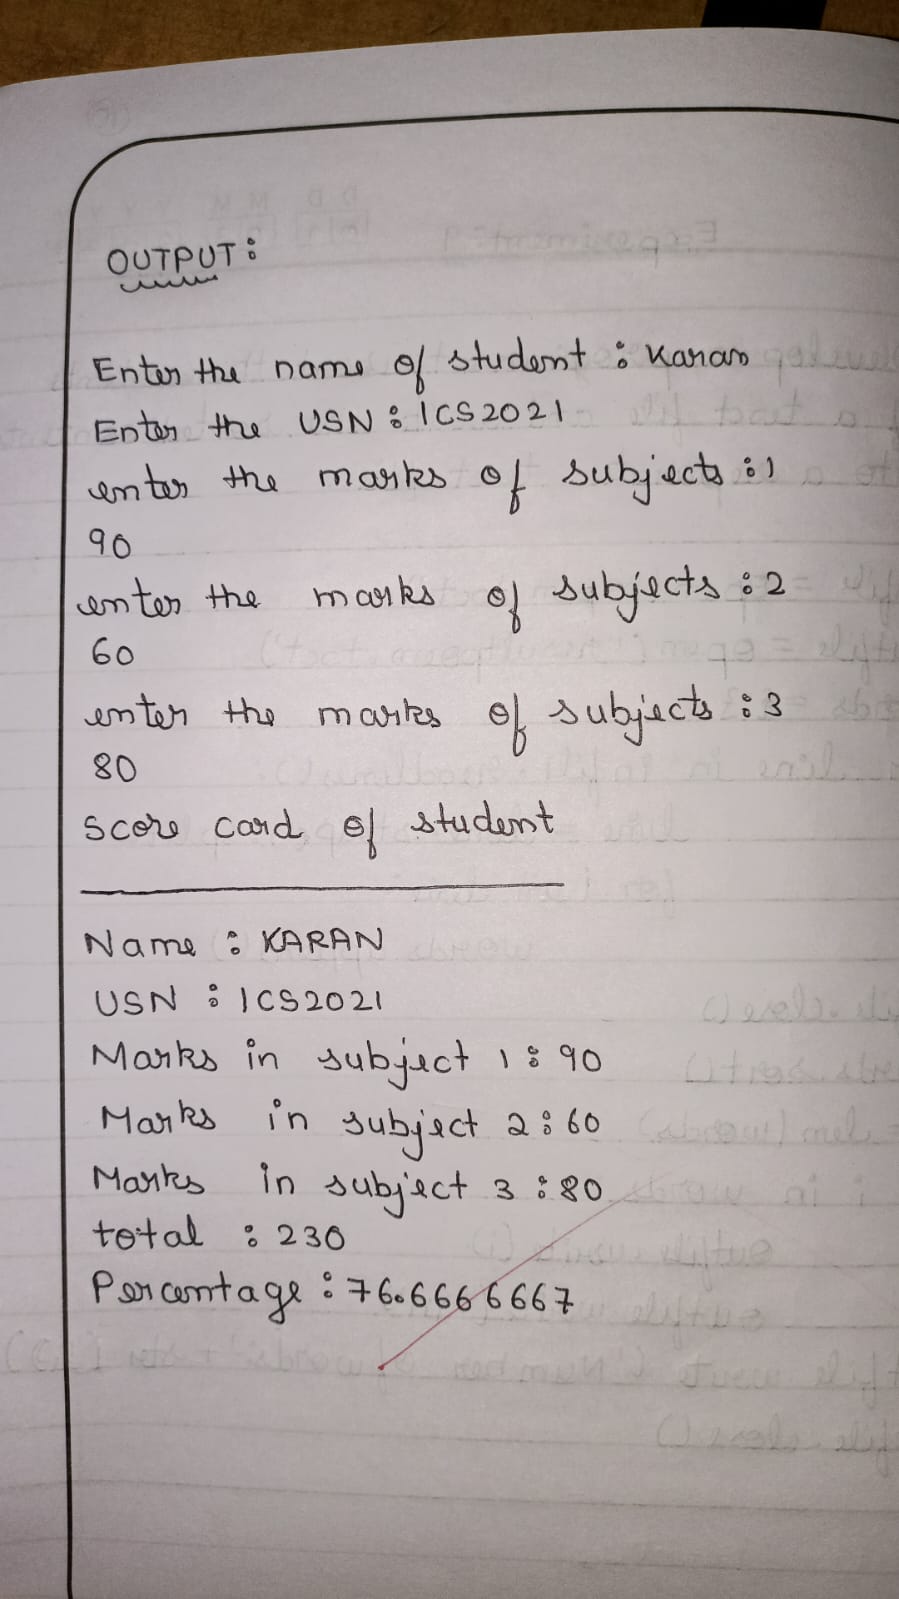 OUTPUT:
Enter the name of student : Karan
Enter the USN : 1CS2021
enter the marks of subjects : 1
90
enter the marks of subjects : 2
60
enter the marks of subjects : 3
80
score card of student
Name : KARAN
USN : 1CS2021
Marks in subject 1 : 90
Marks in subject 2 : 60
Marks in subject 3 : 80
total : 230
Percentage : 76.66666667